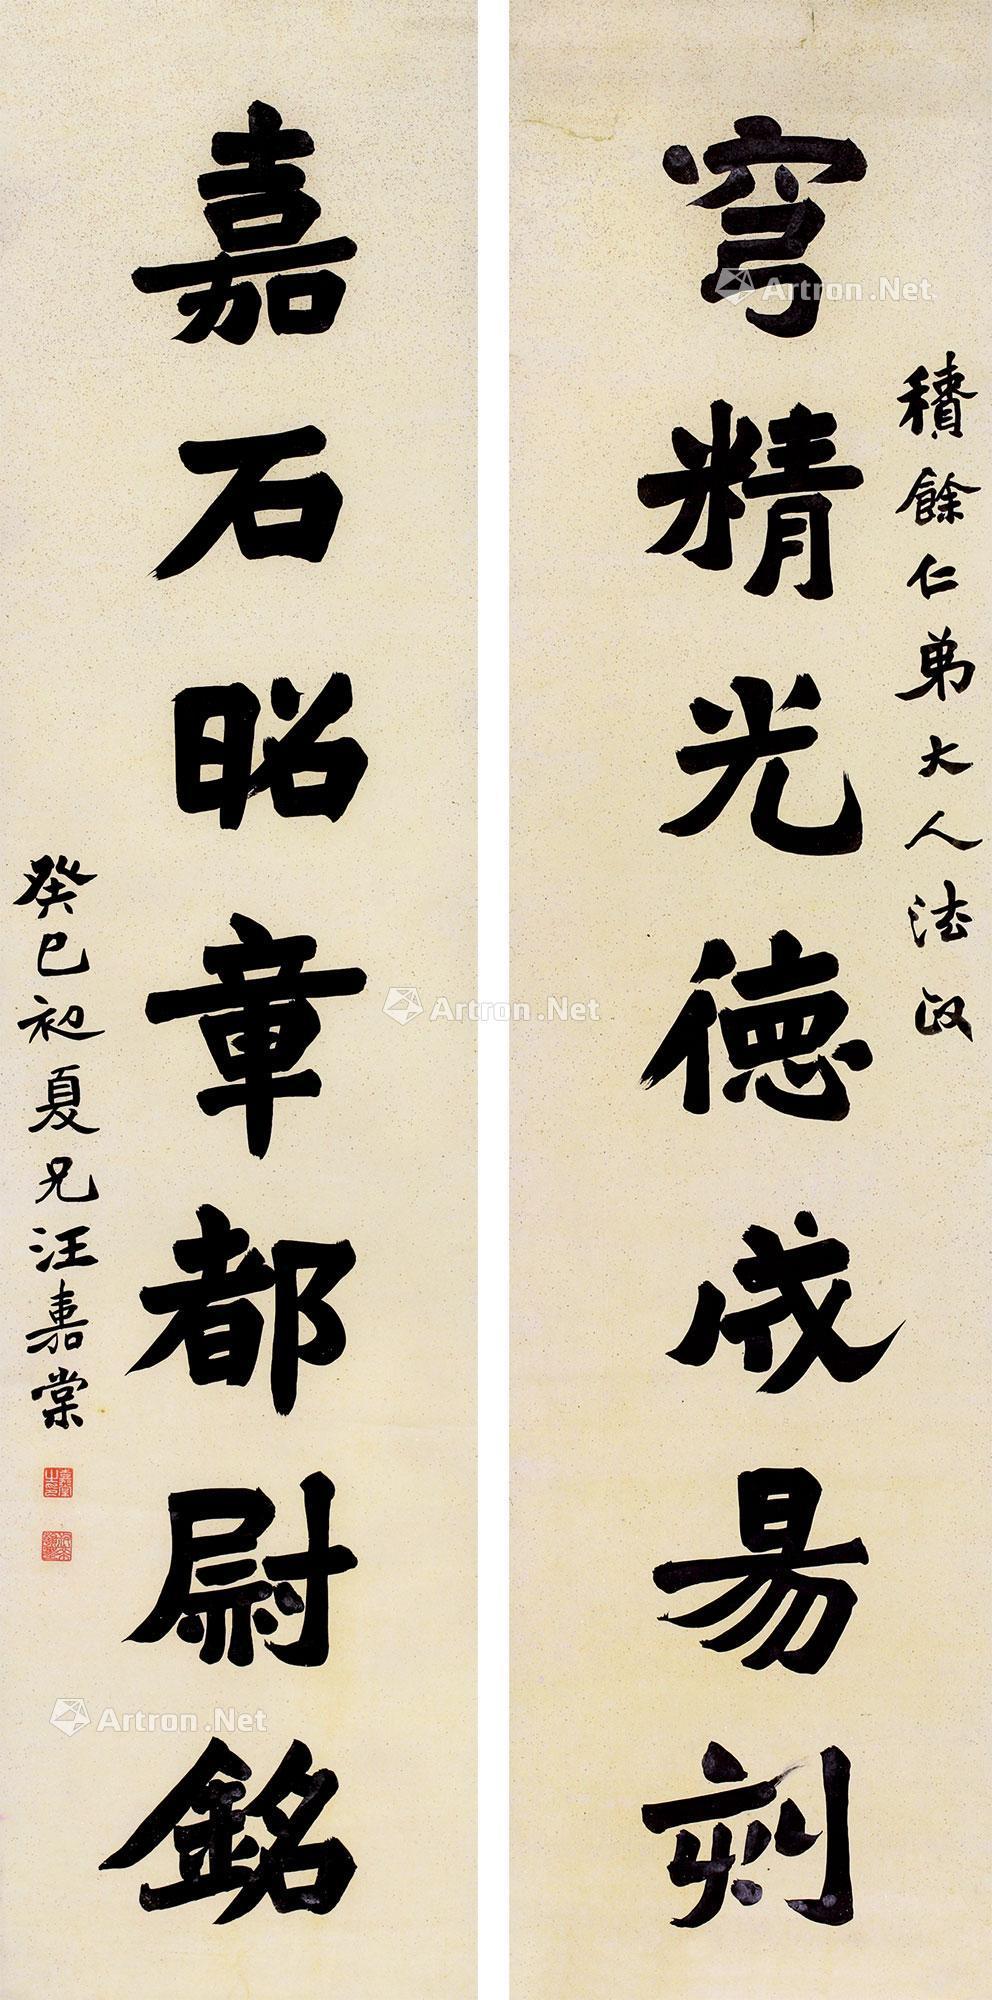 積餘仁弟大人法政
穹精光德成易刻
嘉石昭章都尉銘
癸巳初夏兄汪嘉棠
Artron.Net
Artron.Net
Artron.Net